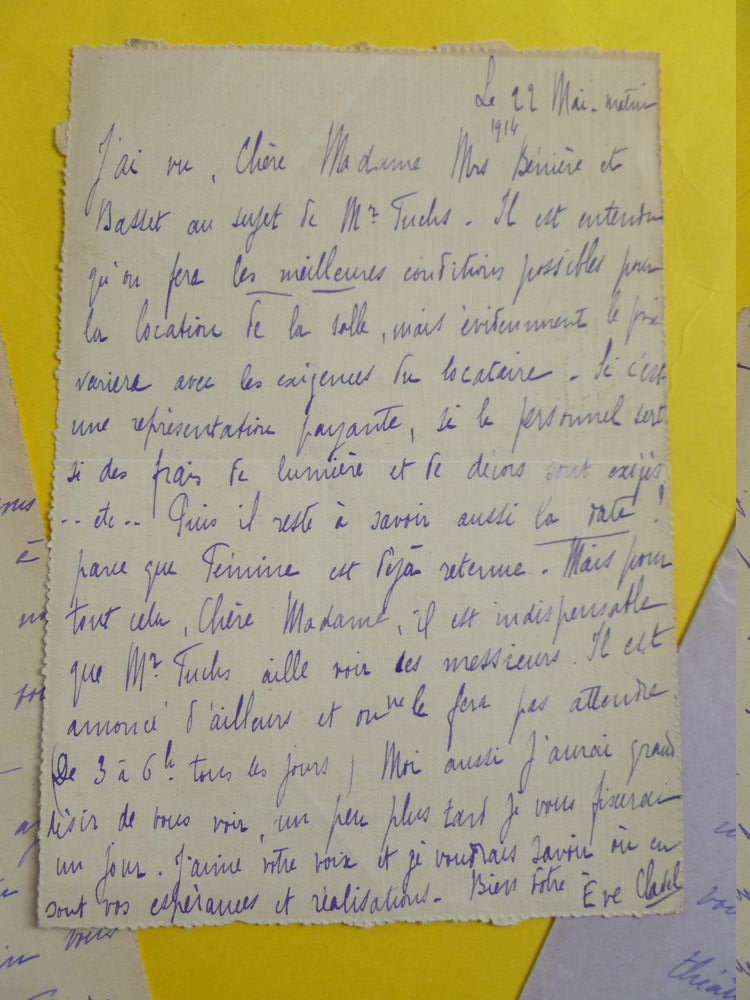 Le 22 Mai - matin
1914
J'ai vu, Chère Madame Mrs Bénière et
Basset au sujet de Mr Fuchs - Il est entendu
qu'on fera les meilleures conditions possibles pour
la location de la salle, mais évidemment le prix
variera avec les exigences du locataire - Si c'est
une représentation payante, si le personnel sert
si des frais de lumière et de décors sont exigés
.. etc .. Puis il reste à savoir aussi la date !
parce que Fémina est déjà retenue - Mais pour
tout cela, Chère Madame, il est indispensable
que Mr Fuchs aille voir ces messieurs. Il est
annoncé d'ailleurs et on ne le fera pas attendre
(De 3 à 6h tous les jours) Moi aussi j'aurai grand
désir de vous voir, un peu plus tard je vous fixerai
un jour. J'aime votre voix et je voudrais savoir où en
sont vos espérances et réalisations - Bien vôtre -
Eve Cladel
vous